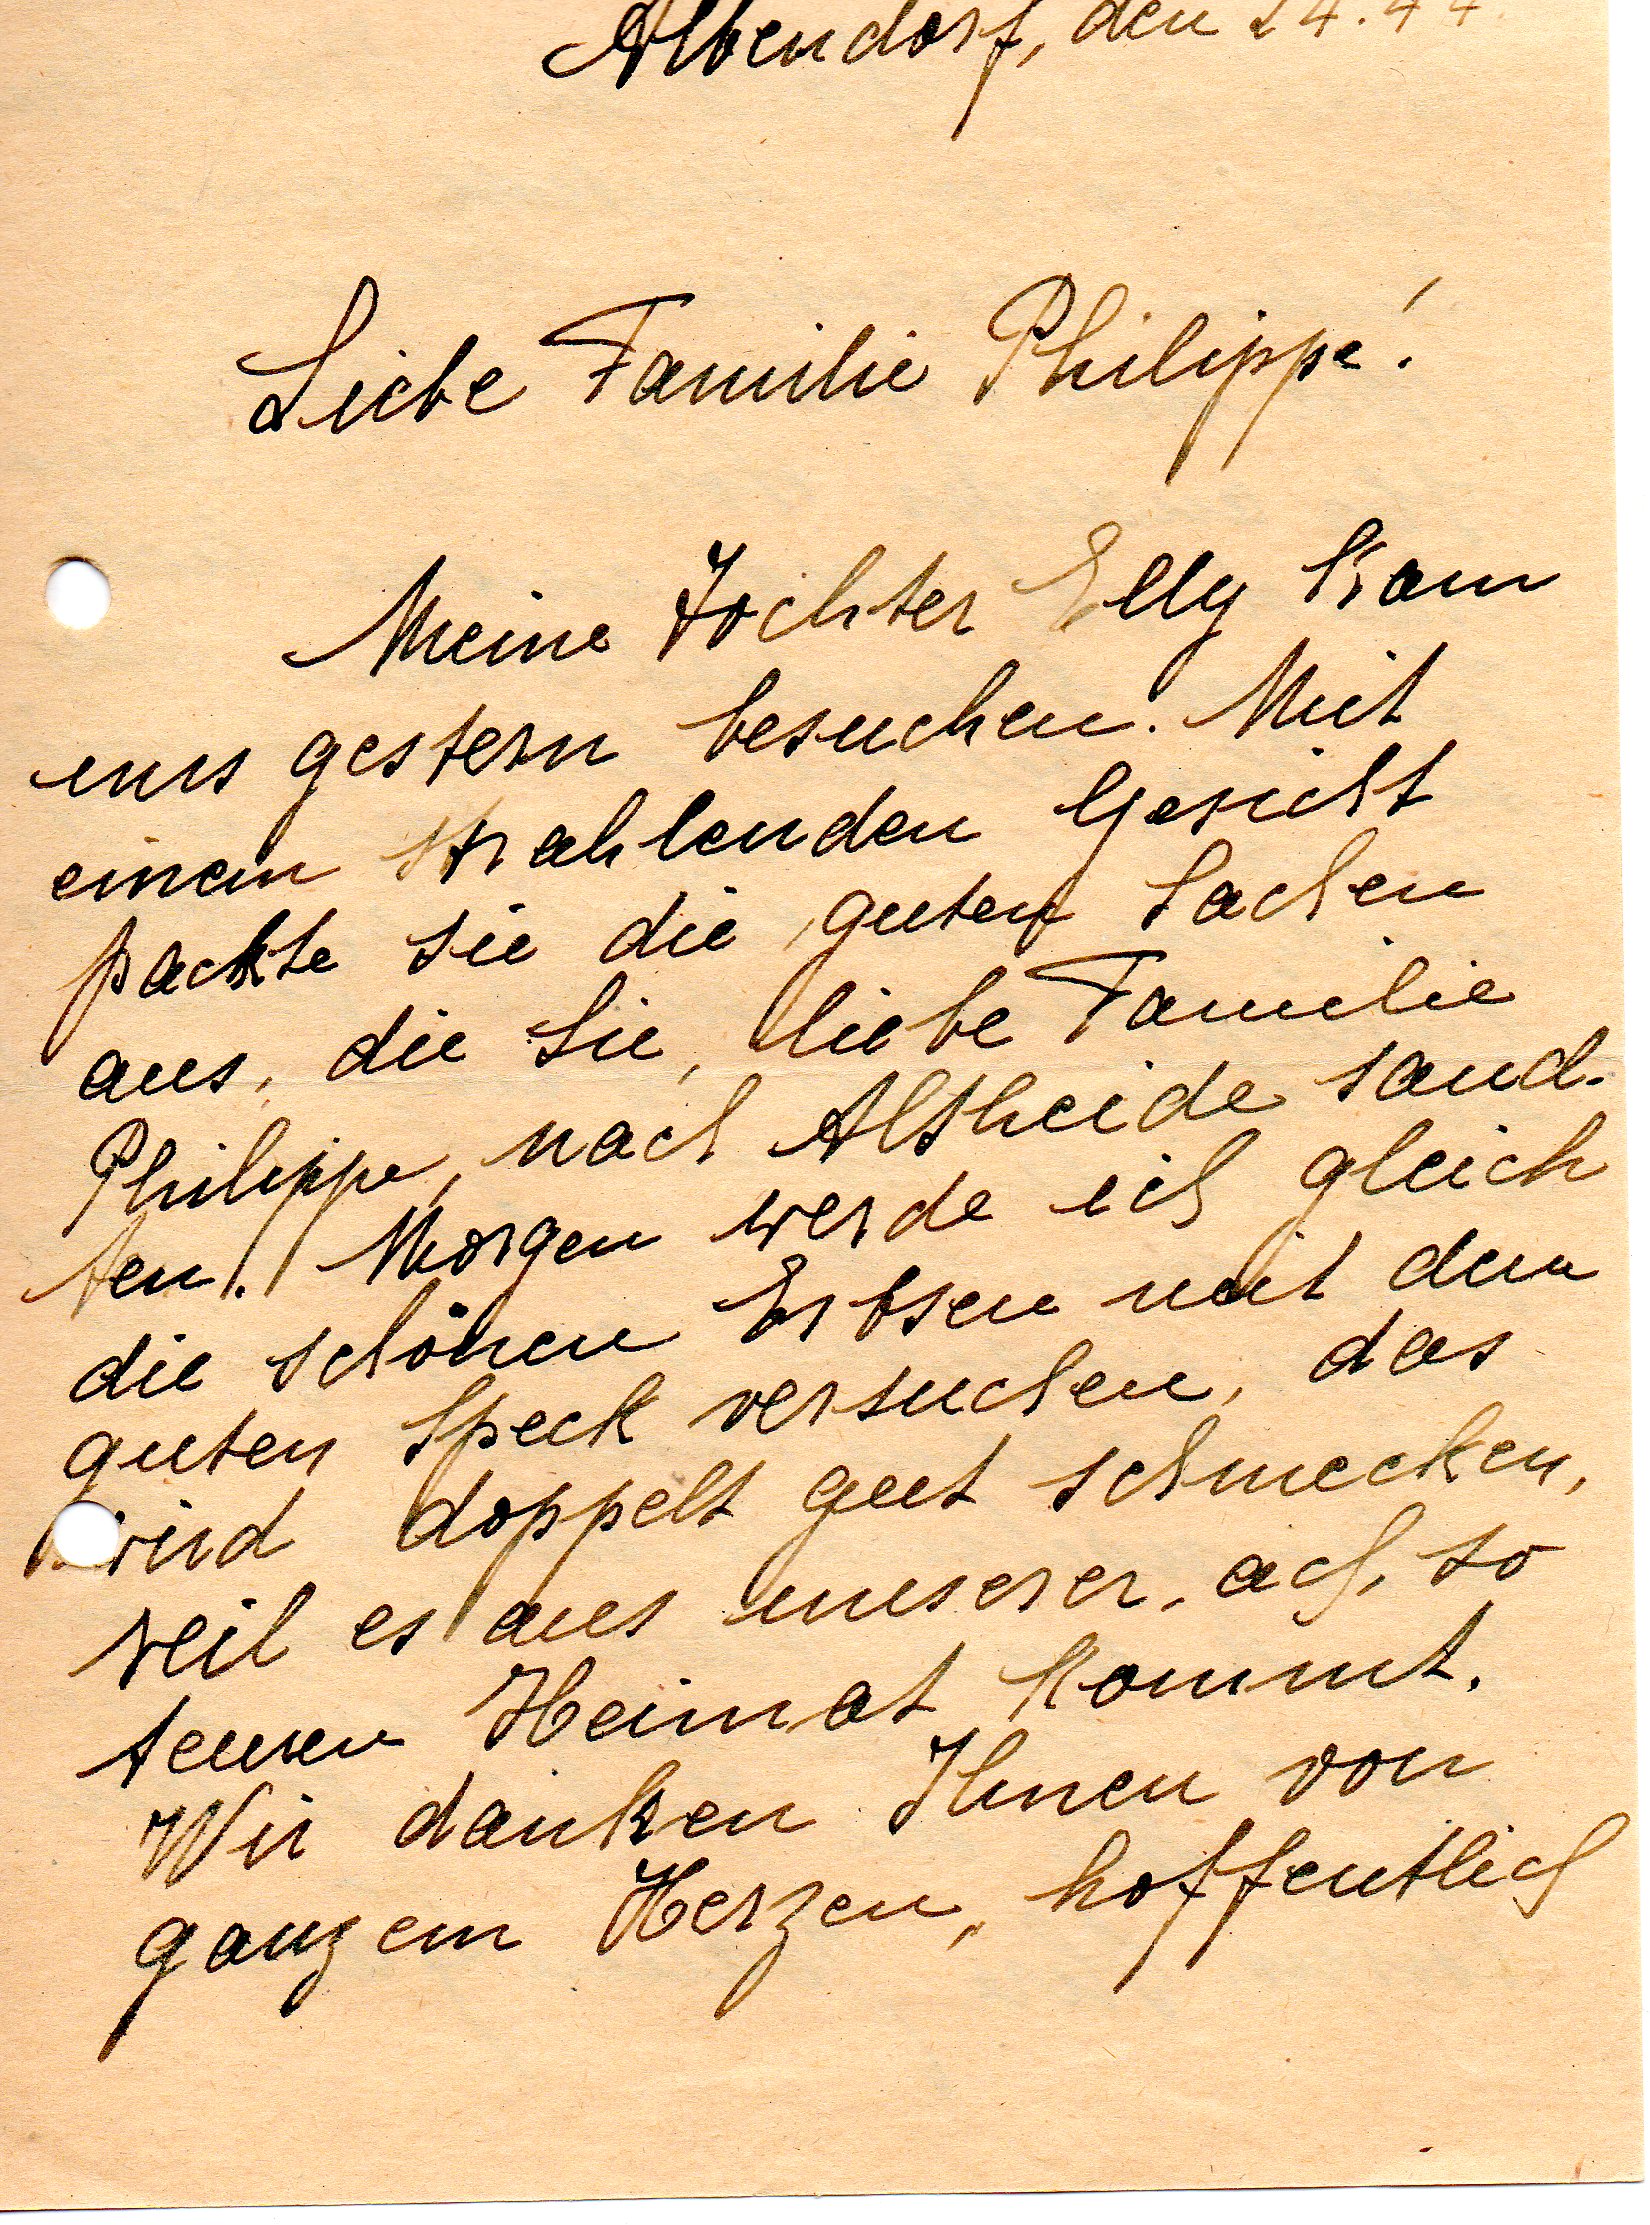 Albendorf, den 24.4
Liebe Familie Philippe!
Meine Tochter Elly kam
uns gestern besuchen. Mit
einem strahlenden Gesicht
packte sie die guten Sachen
aus, die Sie, liebe Familie
Philippe, nach Altheide sand-
ten. Morgen werde ich gleich
die schönen Erbsen mit dem
guten Speck versuchen, das
wird doppelt gut schmecken,
weil es aus unserer, ach, so
teuren Heimat kommt.
Wir danken Ihnen von
ganzem Herzen, hoffentlich